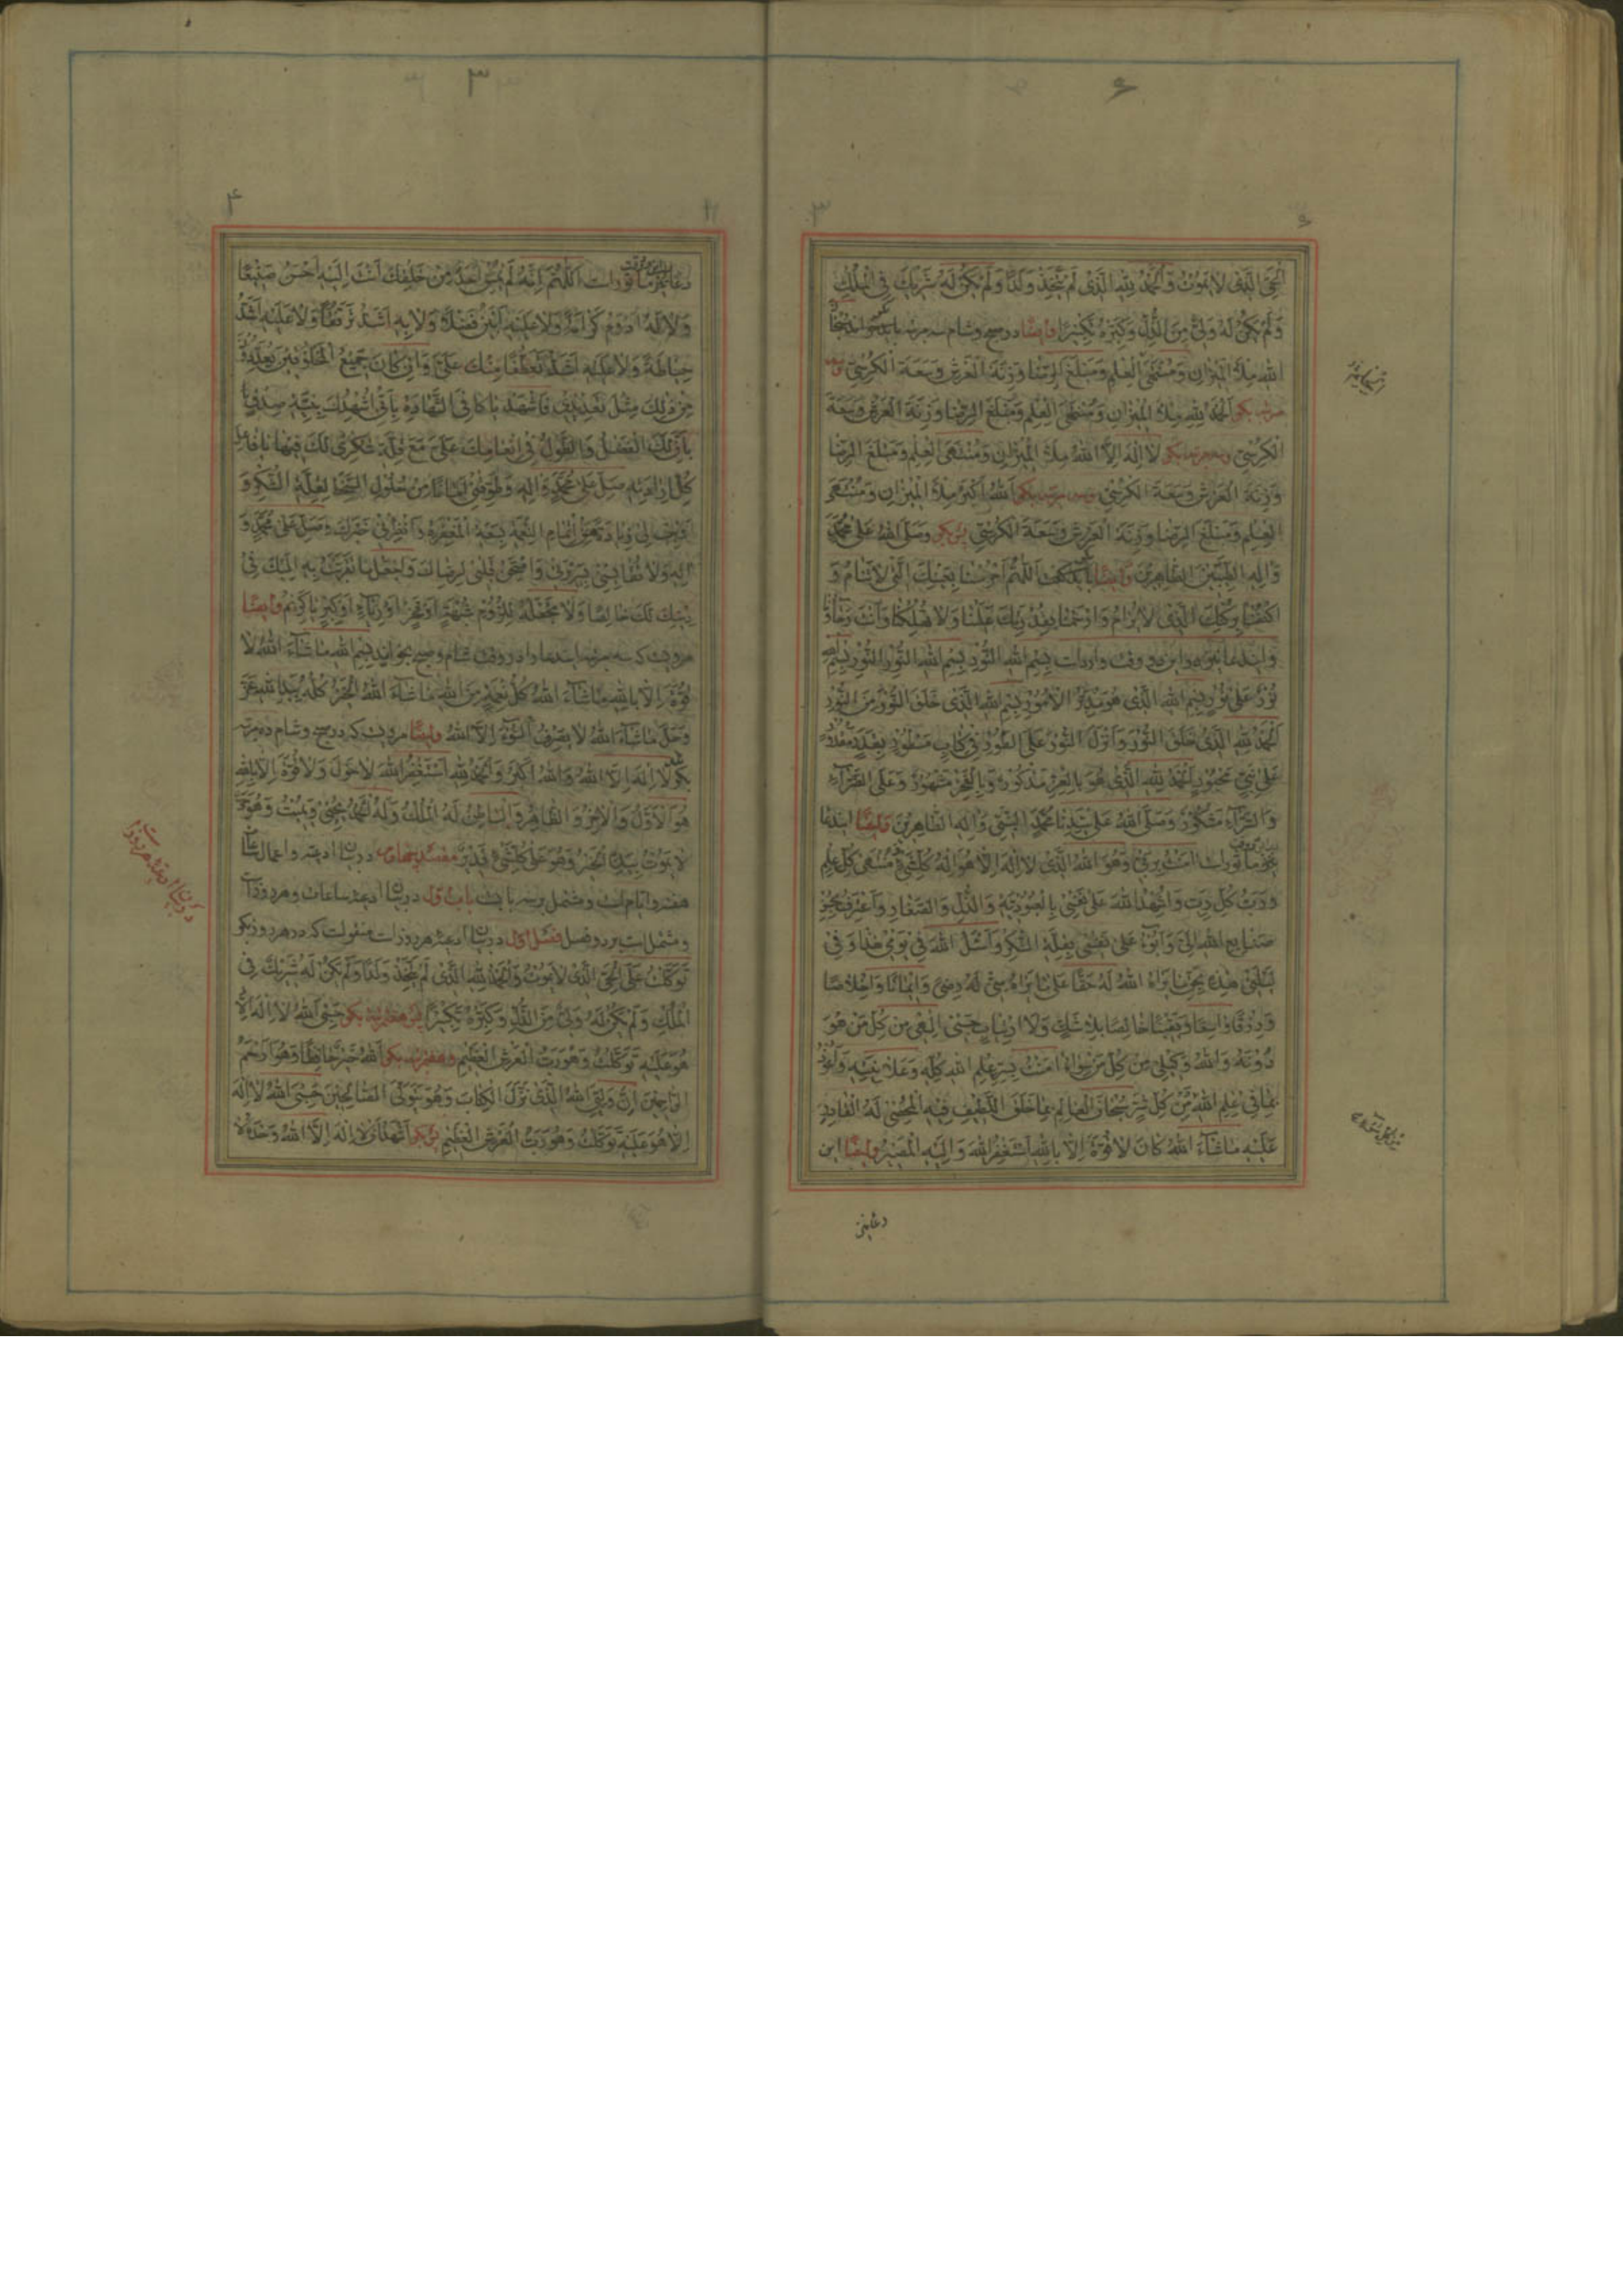 الْحَيِّ الَّذِی لا یَمُوتُ وَ الْحَمْدُ لِلّهِ الَّذِی لَمْ یَتَّخِذْ وَلَدًا وَلَمْ یَکُنْ لَهُ شَرِیكٌ فِی الْمُلْكِ
وَلَمْ یَکُنْ لَهُ وَلِیٌّ مِنَ الذُّلِّ وَکَبِّرْهُ تَکْبِیرًا وایضًا در صبح و شام سه مرتبه سُبْحَانَ
اللهِ مِلْأَ الْمِیزَانِ وَمُنْتَهَی الْعِلْمِ وَمَبْلَغَ الرِّضَا وَزِنَةَ الْعَرْشِ وَسَعَةَ الْکُرْسِیِّ
مرتبه بگو اَلْحَمْدُ لِلّهِ مِلْأَ الْمِیزَانِ وَمُنْتَهَی الْعِلْمِ وَمَبْلَغَ الرِّضَا وَزِنَةَ الْعَرْشِ وَسَعَةَ
الْکُرْسِیِّ بگو لا اِلهَ اِلاَّ اللهُ مِلْأَ الْمِیزَانِ وَمُنْتَهَی الْعِلْمِ وَمَبْلَغَ الرِّضَا
وَزِنَةَ الْعَرْشِ وَسَعَةَ الْکُرْسِیِّ مرتبه بگو اَللهُ اَکْبَرُ مِلْأَ الْمِیزَانِ وَمُنْتَهَی
الْعِلْمِ وَمَبْلَغَ الرِّضَا وَزِنَةَ الْعَرْشِ وَسَعَةَ الْکُرْسِیِّ پس بگو وَصَلَّی اللهُ عَلی مُحَمَّدٍ
وَآلِهِ الطَّیِّبِینَ الطَّاهِرِینَ وایضًا اَللّهُمَّ احْرُسْنَا بِعَیْنِكَ الَّتِی لا تَنَامُ وَ
اکْنُفْنَا بِرُکْنِكَ الَّذِی لا یُرَامُ وَارْحَمْنَا بِقُدْرَتِكَ عَلَیْنَا وَلا تُهْلِکْنَا وَاَنْتَ رَجَاؤُنَا
بِسْمِ اللهِ النُّورِ بِسْمِ اللهِ النُّورِ النُّورِ بِسْمِ اللهِ
نُورٌ عَلی نُورٍ بِسْمِ اللهِ الَّذِی هُوَ مُدَبِّرُ الْاُمُورِ بِسْمِ اللهِ الَّذِی خَلَقَ النُّورَ مِنَ النُّورِ
اَلْحَمْدُ لِلّهِ الَّذِی خَلَقَ النُّورَ وَاَنْزَلَ النُّورَ عَلَی الطُّورِ فِی کِتَابٍ مَسْطُورٍ بِقَدَرٍ مَقْدُورٍ
عَلی نَبِیٍّ مَحْبُورٍ اَلْحَمْدُ لِلّهِ الَّذِی هُوَ بِالْعِزِّ مَذْکُورٌ وَبِالْفَخْرِ مَشْهُورٌ وَعَلَی السَّرَّاءِ
وَالضَّرَّاءِ مَشْکُورٌ وَصَلَّی اللهُ عَلی سَیِّدِنَا مُحَمَّدٍ النَّبِیِّ وَآلِهِ الطَّاهِرِینَ وایضًا
اٰمَنْتُ بِرَبِّی وَهُوَ اللهُ الَّذِی لا اِلهَ اِلاَّ هُوَ اِلهُ کُلِّ شَیْءٍ مُنْتَهَی کُلِّ عِلْمٍ
وَرَبُّ کُلِّ رَبٍّ وَاُشْهِدُ اللهَ عَلی نَفْسِی بِالْعُبُودِیَّةِ وَالذُّلِّ وَالصَّغَارِ وَاَعْتَرِفُ بِحُسْنِ
صَنَایِعِ اللهِ اِلَیَّ وَاَبُوءُ عَلی نَفْسِی بِقِلَّةِ الشُّکْرِ وَاَسْئَلُ اللهَ فِی یَوْمِی هٰذَا وَفِی
لَیْلَتِی هٰذِهِ بِحَقِّ مَا یَرَاهُ اللهُ لَهُ حَقًّا عَلی مَا یَرَاهُ مِنِّی لَهُ رِضًی وَاِیمَانًا وَاِخْلَاصًا
وَرِزْقًا وَاسِعًا وَیَقِینًا خَالِصًا بِلَا شَكٍّ وَلَا ارْتِیَابٍ حَسْبِی اِلٰهِی مِنْ کُلِّ مَنْ هُوَ
دُونَهُ وَاللهُ وَکِیلِی مِنْ کُلِّ مَنْ سِوَاهُ اٰمَنْتُ بِسِرِّ عِلْمِ اللهِ کُلِّهِ وَعَلَانِیَتِهِ وَاَعُوذُ
بِمَا فِی عِلْمِ اللهِ مِنْ کُلِّ شَرٍّ سُبْحَانَ الْعَالِمِ بِمَا خَلَقَ اللَّطِیفِ فِیهِ الْمُحْصِی لَهُ الْقَادِرِ
عَلَیْهِ مَا شَاءَ اللهُ کَانَ لا قُوَّةَ اِلاَّ بِاللهِ اَسْتَغْفِرُ اللهَ وَاِلَیْهِ الْمَصِیرُ وایضًا این
۳
۴
اَللّهُمَّ اِنَّهُ لَمْ یُمْسِ اَحَدٌ مِنْ خَلْقِكَ اَنْتَ اِلَیْهِ اَحْسَنُ صَنِیعًا
وَلا لَهُ اَدْوَمُ کَرَامَةً وَلا عَلَیْهِ اَبْیَنُ فَضْلًا وَلا بِهِ اَشَدُّ تَرَفُّقًا وَلا عَلَیْهِ اَشَدُّ
حِیَاطَةً وَلا عَلَیْهِ اَشَدُّ تَعَطُّفًا مِنْكَ عَلَیَّ وَاِنْ کَانَ جَمِیعُ الْمَخْلُوقِینَ یُعَدِّدُونَ
مِنْ ذٰلِكَ مِثْلَ تَعْدِیدِی فَاشْهَدْ یَا کَافِیَ الشَّهَادَةِ بِاَنِّی اُشْهِدُكَ بِنِیَّةِ صِدْقٍ
بِاَنَّ لَكَ الْفَضْلَ وَالطَّوْلَ فِی اِنْعَامِكَ عَلَیَّ مَعَ قِلَّةِ شُکْرِی لَكَ فِیهَا یَا فَاعِلَ
کُلِّ اِرَادَتِهِ صَلِّ عَلی مُحَمَّدٍ وَآلِهِ وَطَوِّقْنِی اَمَانًا مِنْ حُلُولِ السَّخَطِ لِقِلَّةِ الشُّکْرِ وَ
اَوْجِبْ لِی زِیَادَةً مِنْ اِتْمَامِ النِّعْمَةِ بِسَعَةِ الْمَغْفِرَةِ اَمْطِرْنِی خَیْرَكَ وَصَلِّ عَلی مُحَمَّدٍ وَ
آلِهِ وَلا تُقَایِسْنِی بِسَرِیرَتِی وَامْتَحِنْ قَلْبِی لِرِضَاكَ وَاجْعَلْ مَا تَقَرَّبْتُ بِهِ اِلَیْكَ فِی
دِینِكَ لَكَ خَالِصًا وَلا تَجْعَلْهُ لِلُزُومِ شُبْهَةٍ اَوْ فَخْرٍ اَوْ رِیَاءٍ اَوْ کِبْرٍ یَا کَرِیمُ وایضًا
مرویست که سه مرتبه شام و صبح بخواند بِسْمِ اللهِ مَا شَاءَ اللهُ لا
قُوَّةَ اِلاَّ بِاللهِ مَا شَاءَ اللهُ کُلُّ نِعْمَةٍ مِنَ اللهِ مَا شَاءَ اللهُ الْخَیْرُ کُلُّهُ بِیَدِ اللهِ عَزَّ
وَجَلَّ مَا شَاءَ اللهُ لا یَصْرِفُ السُّوءَ اِلاَّ اللهُ وایضًا مرویست که در صبح و شام ده مرتبه
بگو لا اِلهَ اِلاَّ اللهُ وَاللهُ اَکْبَرُ وَالْحَمْدُ لِلّهِ اَسْتَغْفِرُ اللهَ لا حَوْلَ وَلا قُوَّةَ اِلاَّ بِاللهِ
هُوَ الْاَوَّلُ وَالْاٰخِرُ وَالظَّاهِرُ وَالْبَاطِنُ لَهُ الْمُلْكُ وَلَهُ الْحَمْدُ یُحْیِی وَیُمِیتُ وَهُوَ حَیٌّ
لا یَمُوتُ بِیَدِهِ الْخَیْرُ وَهُوَ عَلی کُلِّ شَیْءٍ قَدِیرٌ مقصد چهارم در بیان ادعیه و اعمال
هفته و ایام است و مشتمل بر سه بابست باب اول در بیان ادعیه ساعات و هر روز است
و مشتمل است بر دو فصل فصل اول در بیان ادعیه هر روز است منقولست که در هر روز بگو
تَوَکَّلْتُ عَلَی الْحَیِّ الَّذِی لا یَمُوتُ وَالْحَمْدُ لِلّهِ الَّذِی لَمْ یَتَّخِذْ وَلَدًا وَلَمْ یَکُنْ لَهُ شَرِیكٌ فِی
الْمُلْكِ وَلَمْ یَکُنْ لَهُ وَلِیٌّ مِنَ الذُّلِّ وَکَبِّرْهُ تَکْبِیرًا پس هفت مرتبه بگو حَسْبِیَ اللهُ لا اِلهَ اِلاَّ
هُوَ عَلَیْهِ تَوَکَّلْتُ وَهُوَ رَبُّ الْعَرْشِ الْعَظِیمِ وهفت مرتبه بگو اَللهُ خَیْرٌ حَافِظًا وَهُوَ اَرْحَمُ
الرَّاحِمِینَ اِنَّ وَلِیِّیَ اللهُ الَّذِی نَزَّلَ الْکِتَابَ وَهُوَ یَتَوَلَّی الصَّالِحِینَ حَسْبِیَ اللهُ لا اِلهَ
اِلاَّ هُوَ عَلَیْهِ تَوَکَّلْتُ وَهُوَ رَبُّ الْعَرْشِ الْعَظِیمِ پس بگو اَشْهَدُ اَنْ لا اِلهَ اِلاَّ اللهُ وَحْدَهُ لا
در بیان ادعیه هر روز است